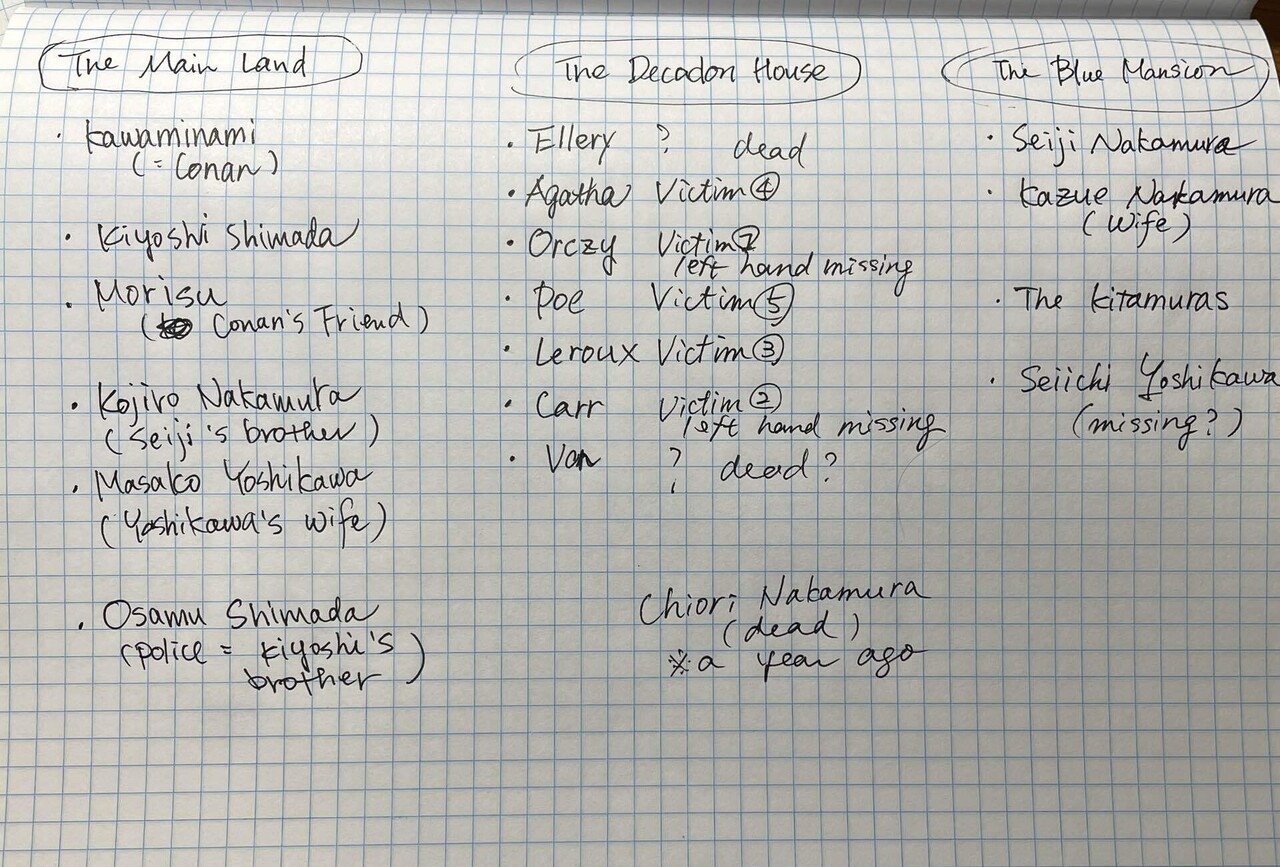 The Main Land
· Kawaminami
(= Conan)
· Kiyoshi Shimada
· Morisu
( Conan's Friend )
· Kojiro Nakamura
( Seiji's brother )
· Masako Yoshikawa
( Yoshikawa's wife )
· Osamu Shimada
( police = Kiyoshi's
brother )
The Decadon House
· Ellery ? dead
· Agatha Victim ④
· Orczy Victim ①
left hand missing
· Poe Victim ⑤
· Leroux Victim ③
· Carr Victim ②
left hand missing
· Van ? dead ?
Chiori Nakamura
( dead )
※ a year ago
The Blue Mansion
· Seiji Nakamura
· Kazue Nakamura
( Wife )
· The Kitamuras
· Seiichi Yoshikawa
( missing ? )